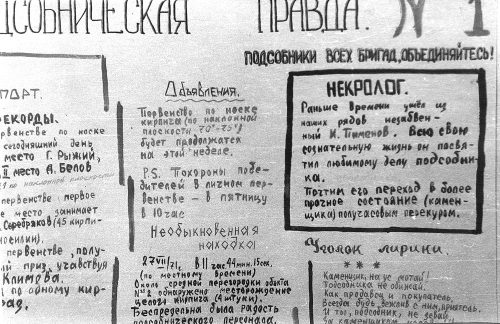 ДСОБНИЧЕСКАЯ ПРАВДА. N 1
ПОДСОБНИКИ ВСЕХ БРИГАД, ОБЪЕДИНЯЙТЕСЬ!
ПОРТ.
ЕКОРДЫ.
рвенство по носке
сегодняшний день
место Г. Рыжий,
II место А. Белов
по наклонной
первенстве первое
е место занимает
Серебряков (45 кирпи-
первенстве, полу-
приз, учавствуя
Климова.
по одному кир-
Объявления.
Первенство по носке
кирпича (по наклонной
плоскости 70°-75°)
будет продолжатся
на этой неделе.
P.S. Похороны побе-
дителей в личном пер-
венстве - в пятницу
в 10 час
Необыкновенная
находка!
27 VII /71г. в 11 час 44 мин. 15 сек.
(по местному времени)
Около средней перегородки объекта
обнаружено месторождение
целого кирпича (4 штуки).
Беспредельна была радость
подсобнического персонала.
НЕКРОЛОГ.
Раньше времени ушёл из
наших рядов незабвен-
ный И. Пименов. Всю свою
сознательную жизнь он посвя-
тил любимому делу подсобни-
ка.
Почтим его переход в более
прочное состояние (камен-
щика) получасовым перекуром.
Уголок лирики.
* * *
Каменщик, на ус мотай!
Подсобника не обижай.
Как продавец и покупатель,
Всегда будь вежлив с ним, приятель.
И ты, подсобник, не зевай,
За каменщиком